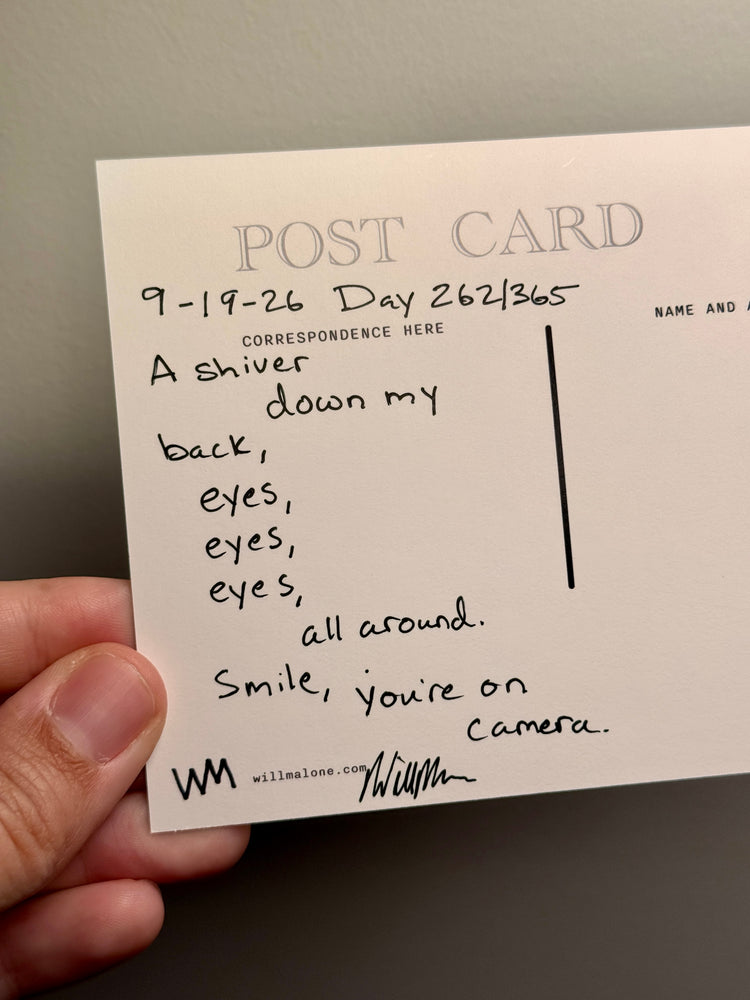 POST CARD
9-19-26 Day 262/365
CORRESPONDENCE HERE
A shiver
down my
back,
eyes,
eyes,
eyes,
all around.
Smile, you're on
camera.
WM willmalone.com
NAME AND